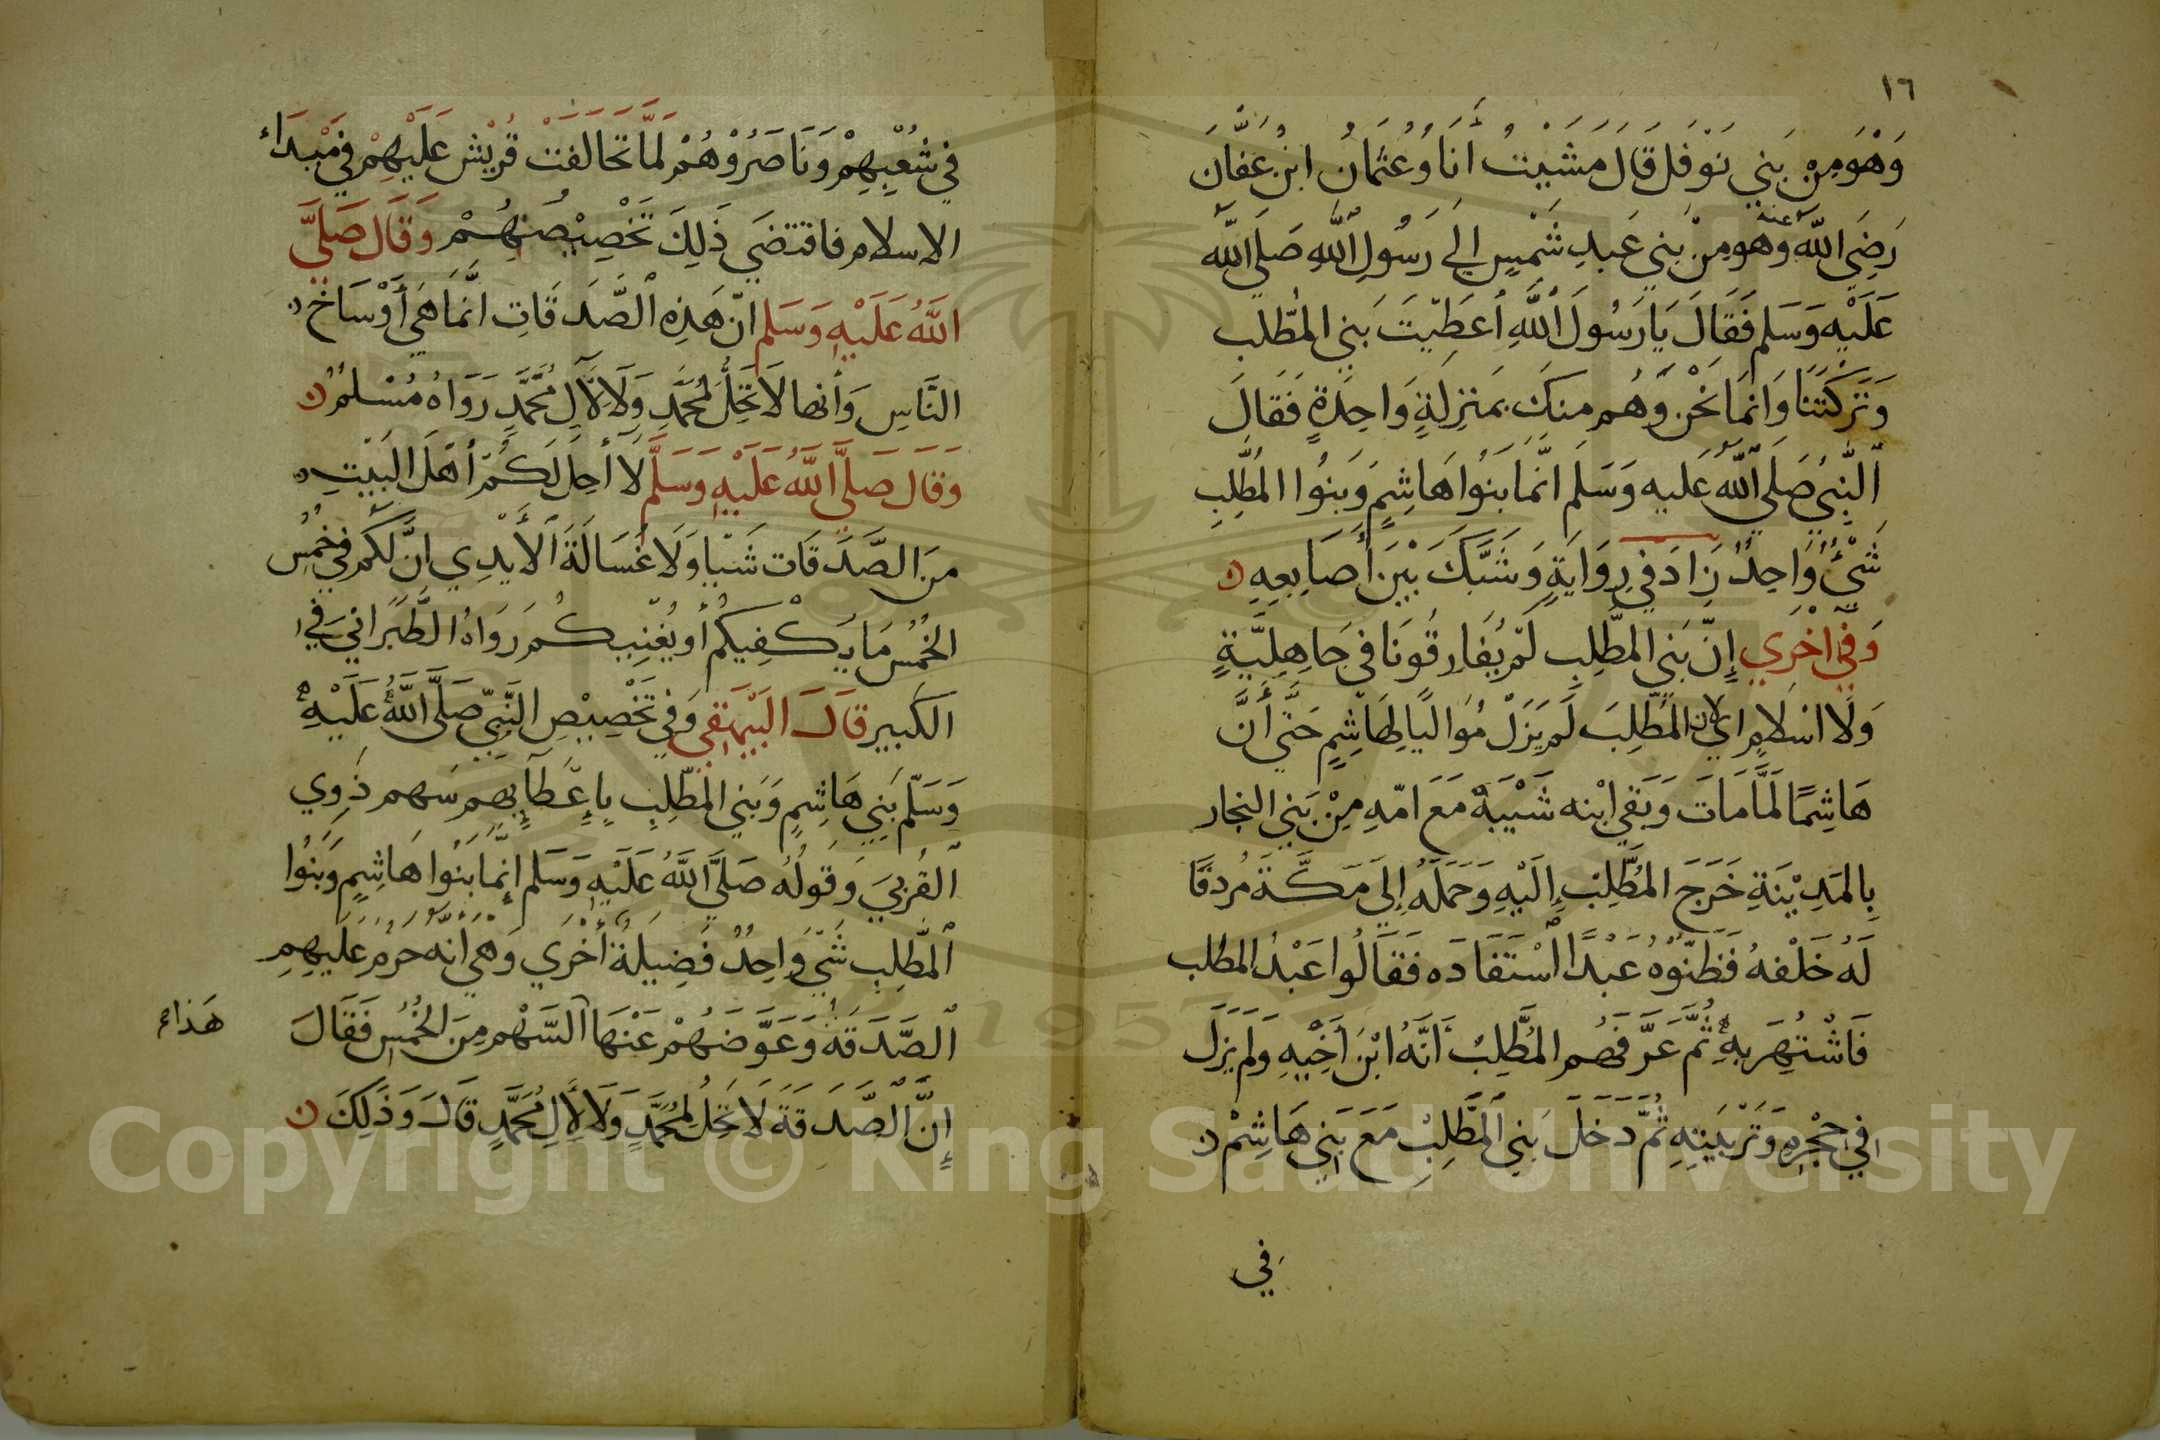 ١٦
وَهُوَ مِنْ بَنِي نَوْفَلَ قَالَ مَشَيْتُ أَنَا وَعُثْمَانُ ابْنُ عَفَّانَ
رَضِيَ اللَّه عنه وَهُو مِنْ بَنِي عَبدِ شَمْسٍ إلَى رَسُولِ اللهِ صَلى اللَّه
عَلَيْهِ وَسَلم فَقَالَ يَا رَسُولَ اللَّهِ أعَطِيْتَ بَنِي المُطّلب
وَتَرَكْتَنَا وَانمَا نَحْن وَهُم مِنكَ بمَنزِلَةٍ وَاحِدَةٍ فَقَالَ
النَّبِيُ صَلَى اللَّهُ عَليه وَسَلَم انَّمَا بَنُوا هَاشِمٍ وَبَنُوا المُطَّلِبِ
شَيْءُ وَاحِدٌ زَادَ فِي رِوَايَةٍ وَشَبَّكَ بَيْنَ أَصَابِعِهِ ن
وَفِي اخرَي إِنّ بَنِي المطَّلِبِ لَم يُفَارِقُونَا في جَاهِلِيَّةٍ
وَلَا اسْلَامٍ اي لان المُطَّلِبَ لَم يَزَلْ مُوَاليًا لِهَاشِمٍ حَتَّي أَنَّ
هَاشِمًا لمَّا مَاتَ وَبَقي ابْنه شَيْبَةَ مَعَ امّهِ مِنْ بَني النجار
بِالمَدِيْنَةِ خَرَجَ المُطَّلِبُ إِلَيْهِ وَحَمَلَهُ إلَى مَكَّةَ مُردفًا
لَهُ خَلْفهُ فَظَنّوْهُ عَبْدًا اسْتَفَادَه فَقَالُوا عَبْدُ المطلب
فَاشْتُهِرَ بِهِ ثُمَّ عَرَّفَهُم المُطَّلِبُ أَنَّهُ ابْنُ أَخِيْهِ وَلَم يَزَل
في حِجْرِهِ وَتَرْبَيَتِهِ ثُمَّ دَخَلَ بَنِي المطَّلِبْ مَعَ بَنِي هَاشِمْ ن
في
في شُعْبِهِمْ وَنَاصَرُوْهُمْ لَمَّا تَحَالَفَتْ قُرَيْش عَلَيْهِمْ في مَبْدَاء
الاسلام فاقتضَي ذَلِكَ تَخْصِيْصَهُمْ وَقَالَ صَلَّي
اللَّهُ عَلَيْهِ وَسَلم انّ هَذِهِ الصَّدَقَاتِ انَّمَا هَي أَوْسَاخ ن
النَّاسِ وَأنها لَا تَحِلُّ لمُحَمَّدٍ وَلَا لِآلِ مُحَمَّدٍ رَوَاهُ مُسْلمٌ ن
وَقَالَ صَلَّى اللَّهُ عَلَيْهِ وَسَلَّم لَا أُحِل لَكُمْ أَهْلَ البَيْتِ ن
مِنَ الصَّدَقَات شَيْا وَلَا غُسَالَةَ الأَيْدِي انَّ لَكُم فِي خُمُسِ
الخُمْس مَا يَكْفِيكُم أو يُغْنِيكُم رَوَاهُ الطَّبَرَانيّ في
الكَبير قَالَ البَيْهَقي وَفي تَخْصِيْصِ النَّبيّ صَلَّى اللَّهُ عَلَيْهِ
وَسَلّم بَنِي هَاشِمٍ وَبَنِي المُطّلِبِ بِإِعْطَآئهِم سَهم ذَوِي
القُربَيَ وَقَوْلُهُ صَلَّى اللَّهُ عَلَيْهِ وَسَلم إنمَّا بَنُوا هَاشِمٍ وَبَنُوا
المُطَّلِب شَيْ وَاحِدٌ فَضِيْلَةٌ أُخْرَي وَهْي أنهُ حَرمُ عَلَيهِمِ
الصَّدَقَةُ وَعَوَّضَهُمْ عَنْهَا السَّهْم مِنَ الخُمُس فَقَالَ
هَذا م
إِنَّ الصَّدَقَةَ لَا تَحِلُ لمُحَمَّدٍ وَلَا لِأَلِ مُحَمَّدٍ قَالَ وَذَلِكَ ن
1957
Copyright © King Saud University